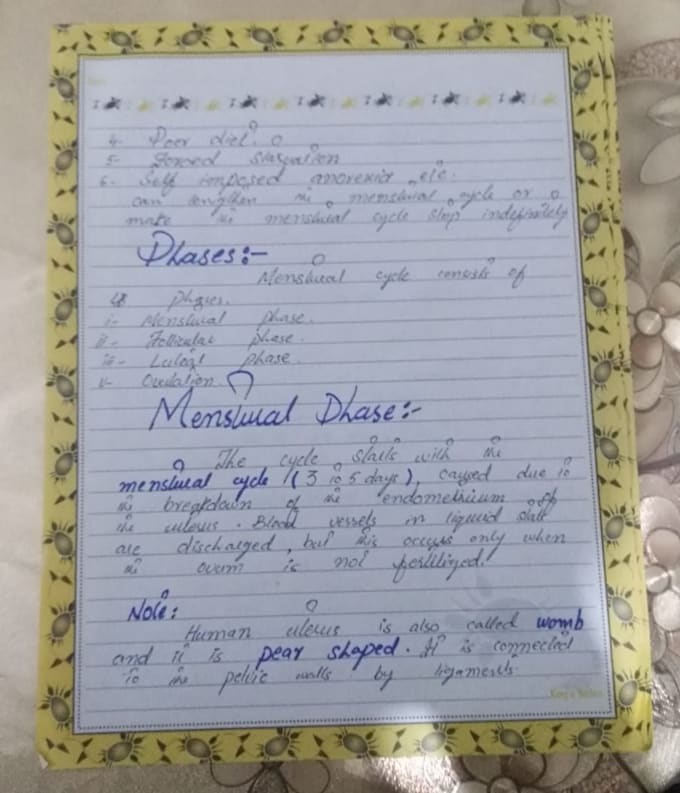 4- Poor diet.
5- Forced starvation
6- Self imposed anorexia etc.
can lengthen the menstrual cycle or
make the menstrual cycle stop indefinitely
Phases:-
Menstrual cycle consists of
phases.
i- Menstrual phase.
ii- Follicular phase.
iii- Luteal phase.
v- Ovulation
Menstrual Phase:-
The cycle starts with the
menstrual cycle (3 to 5 days), caused due to
the breakdown of the endometrium of
the uterus. Blood vessels in liquid state
are discharged, but this occurs only when
the ovum is not fertilized.
Note:
Human uterus is also called womb
and it is pear shaped. It is connected
to the pelvic walls by ligaments.